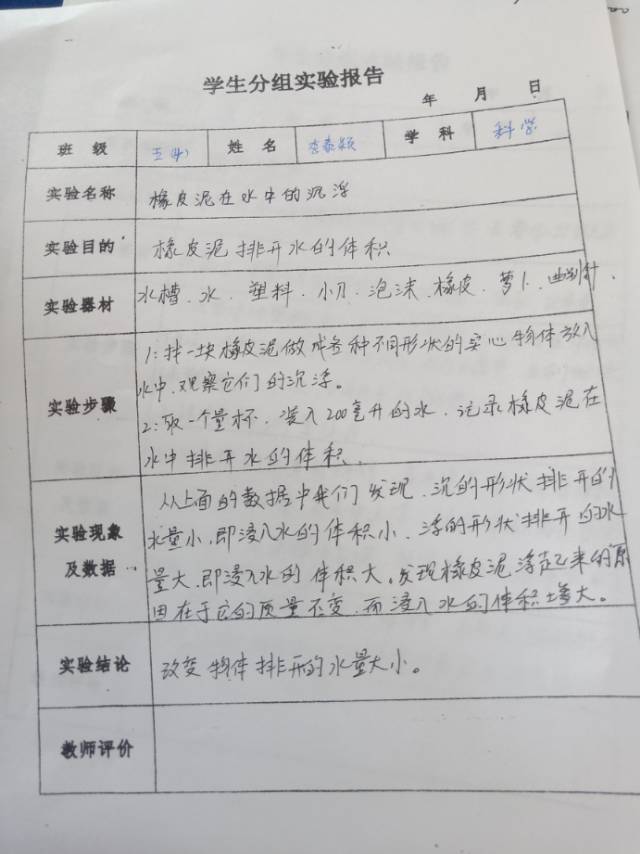 学生分组实验报告
年 月 日
班 级 五(4) 姓 名 学 科 科学
实验名称 橡皮泥在水中的沉浮
实验目的 橡皮泥排开水的体积
实验器材 水槽、水、塑料、小刀、泡沫、橡皮、萝卜、曲别针、
实验步骤
1:找一块橡皮泥做成各种不同形状的实心物体放入
水中,观察它们的沉浮。
2:取一个量杯,装入200毫升的水,记录橡皮泥在
水中排开水的体积、
实验现象及数据
从上面的数据中我们发现,沉的形状排开的
水量小,即浸入水的体积小,浮的形状排开的水
量大,即浸入水的体积大。发现橡皮泥浮起来的原
因在于它的质量不变,而浸入水的体积增大。
实验结论 改变物体排开的水量大小。
教师评价